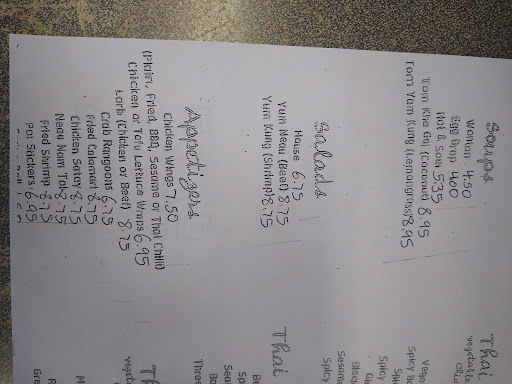 Soups
Wonton 4.50
Egg Drop 4.00
Hot & Sour 5.35
Tom Kha Gai (Coconut) 8.95
Tom Yum Kung (Lemongrass) 8.95
Salads
House 6.75
Yum Neau (Beef) 8.75
Yum Kung (Shrimp) 8.75
Appetizers
Chicken Wings 7.50
(Plain, Fried, BBQ, Sesame or Thai Chili)
Chicken or Tofu Lettuce Wraps 6.95
Larb (Chicken or Beef) 8.75
Crab Rangoons 6.75
Fried Calamari 8.75
Chicken Satay 8.75
Neau Nam Tok 8.75
Fried Shrimp 8.75
Pot Stickers 6.95
Thai
vegetable
Spicy
Spicy
Sesame
Spicy
Thai
Three